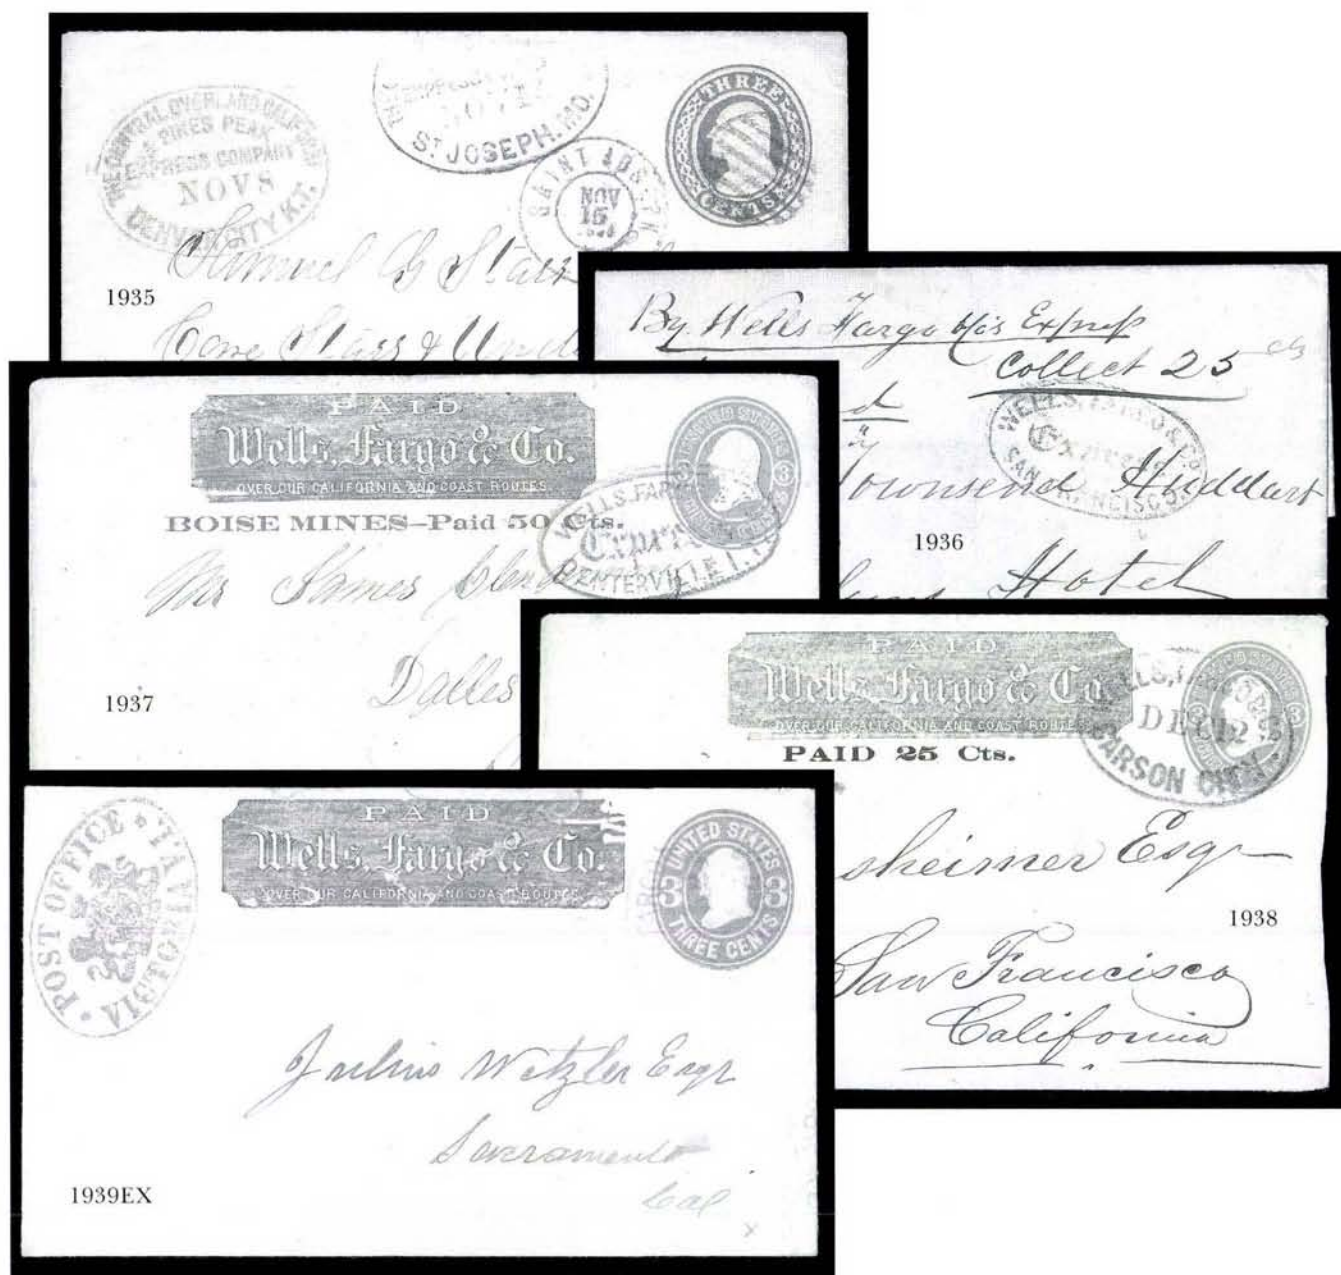 THE CENTRAL OVERLAND CALIFORNIA
PIKES PEAK
EXPRESS COMPANY
NOV 8
DENVER CITY K.T.
EXPRESS
ST JOSEPH. MO.
SAINT JOSEPH
NOV
15
THREE
CENTS
Samuel G Starr
1935
By Wells Fargo & Co's Express
Collect 25 cts
WELLS, FARGO & CO.
Express
SAN FRANCISCO
Townsend Huddart
1936
Hotel
PAID
Wells, Fargo & Co.
OVER OUR CALIFORNIA AND COAST ROUTES.
BOISE MINES–Paid 50 Cts.
UNITED STATES
3 3
THREE CENTS
WELLS, FARGO
Express
CENTERVILLE I.T.
Mr James
Dalles
1937
PAID
Wells, Fargo & Co.
OVER OUR CALIFORNIA AND COAST ROUTES.
PAID 25 Cts.
WELLS, FARGO & CO
DEC 12
CARSON CITY
3 3
sheimer Esq
1938
San Francisco
California
POST OFFICE
VICTORIA V.I.
PAID
Wells, Fargo & Co.
OVER OUR CALIFORNIA AND COAST ROUTES.
UNITED STATES
3 3
THREE CENTS
Julius Wetzler Esqr
Sacramento
Cal
1939EX